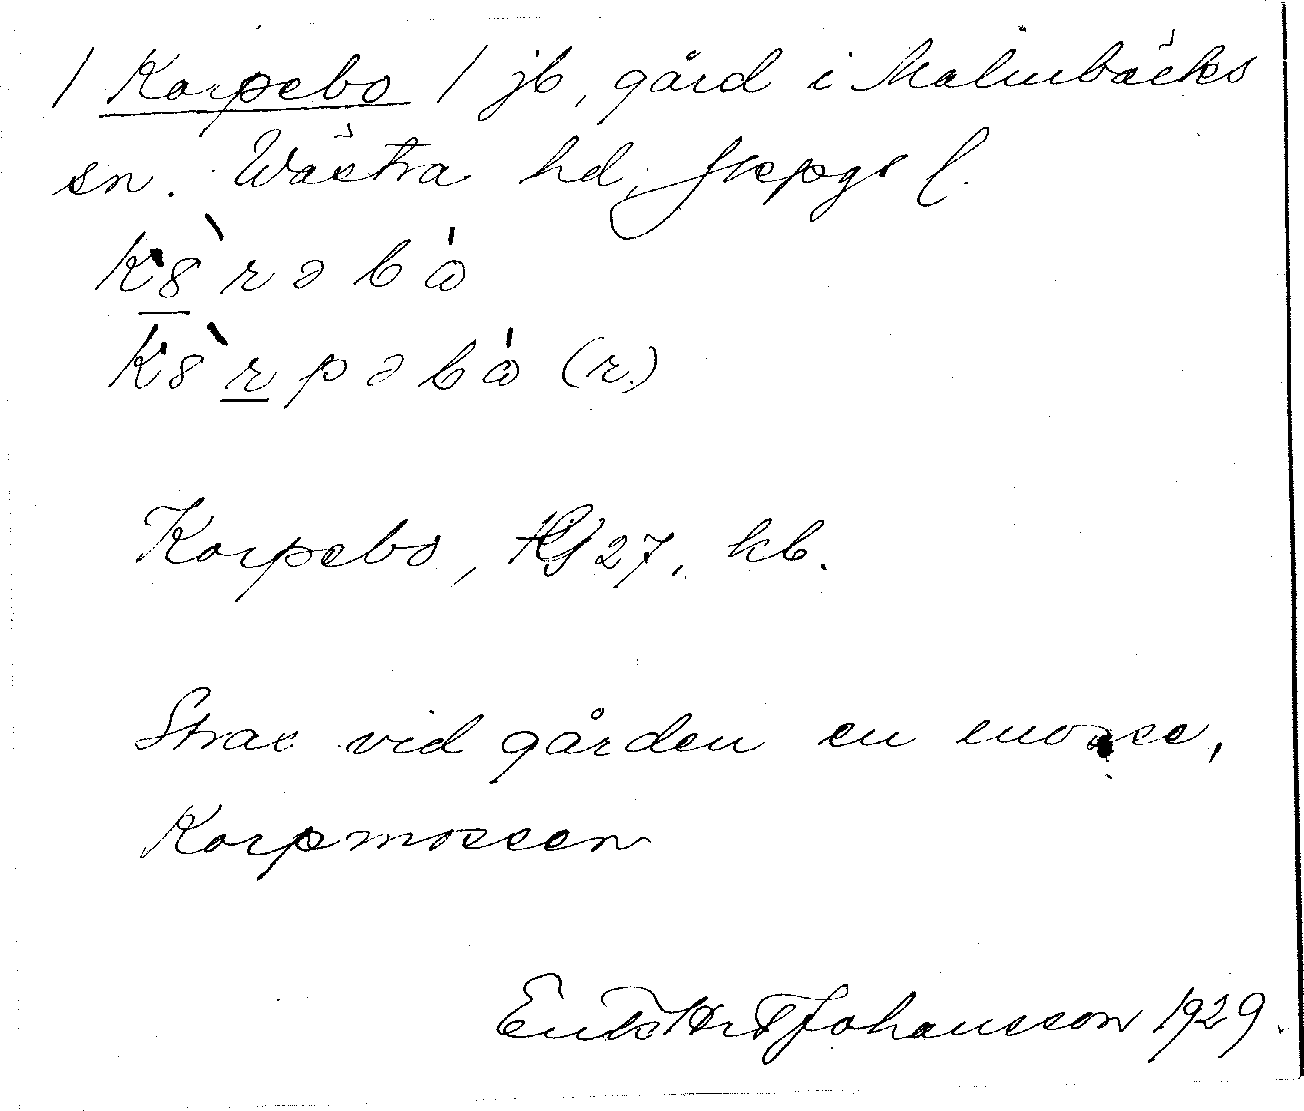 / Korpebo / jb, gård i Malmbäcks
sn. Wästra hd, Jkpgs l.
K8̀rəbò
K8̀rpəbò (r.)
Korpebo, 27, kb.
Strax vid gården en mosse,
Korpmossen
Johansson 1929.